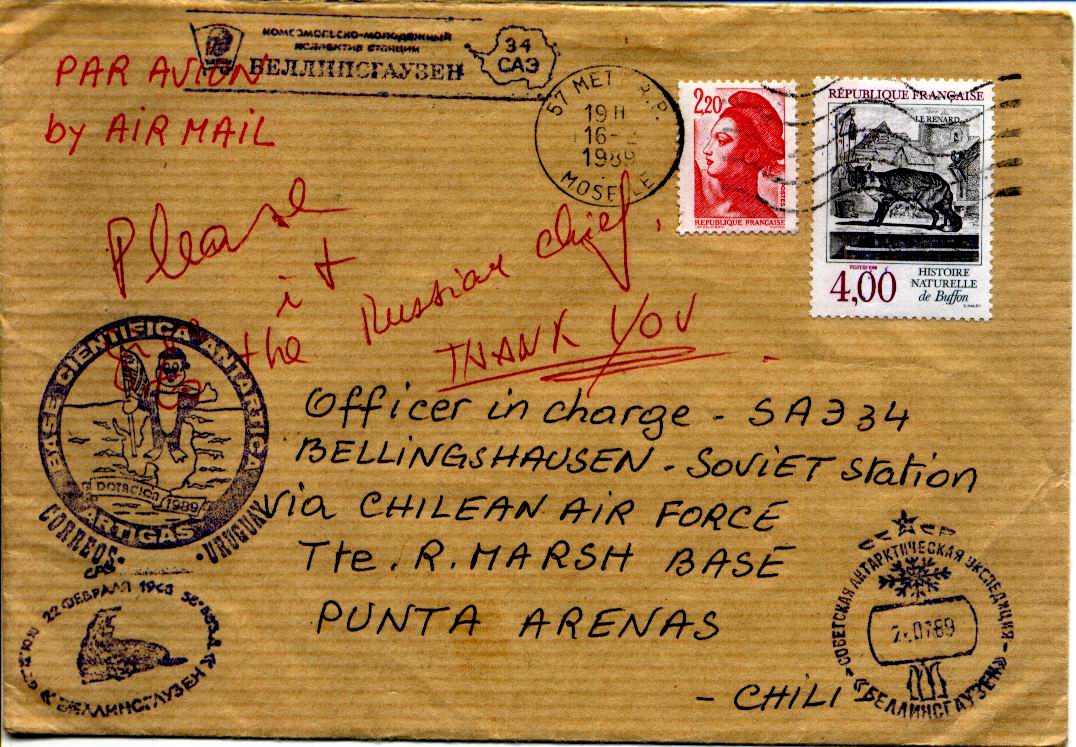 КОМСОМОЛЬСКО-МОЛОДЕЖНЫЙ
КОЛЛЕКТИВ СТАНЦИИ
БЕЛЛИНСГАУЗЕН
34
САЭ
PAR AVION
by AIR MAIL
57 METZ R.P.
19H
16-
1989
MOSELLE
2,20
POSTES
REPUBLIQUE FRANÇAISE
RÉPUBLIQUE FRANÇAISE
LE RENARD
POSTES 1988
4,00
HISTOIRE
NATURELLE
de Buffon
Please
it
the Russian chief.
THANK YOU
BASE CIENTIFICA ANTARTICA
DOTACION 1989
ARTIGAS
CORREOS. URUGUAY
Officer in charge - SAЭ 34
BELLINGSHAUSEN - SOVIET station
via CHILEAN AIR FORCE
Tte. R. MARSH BASE
PUNTA ARENAS
- CHILI
САЭ
22 ФЕВРАЛЯ 1968
«БЕЛЛИНСГАУЗЕН»
СОВЕТСКАЯ АНТАРКТИЧЕСКАЯ ЭКСПЕДИЦИЯ
89
«БЕЛЛИНСГАУЗЕН»